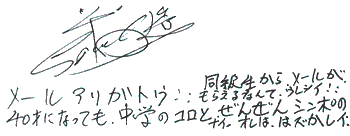 メール アリガトウ!!
同級生から メールが、
もらえるなんて、ウレシイ!!
40才になっても、中学のコロと ぜんぜん シンポの
ナイ オレは、はズかしイ。